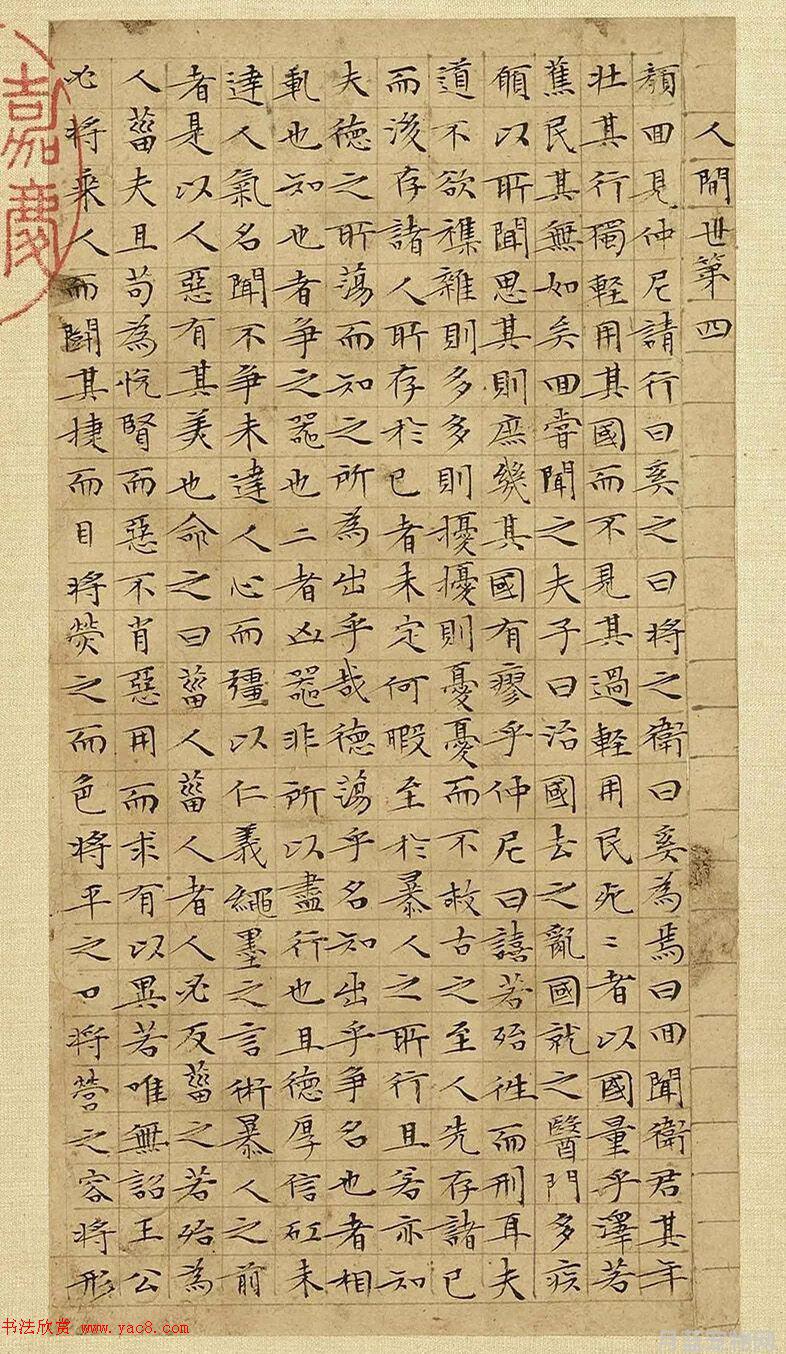 人間世第四
顏回見仲尼請行曰奚之曰將之衛曰奚為焉曰回聞衛君其年
壯其行獨輕用其國而不見其過輕用民死〻者以國量乎澤若
蕉民其無如矣回嘗聞之夫子曰治國去之亂國就之醫門多疾
願以所聞思其則庶幾其國有瘳乎仲尼曰譆若殆往而刑耳夫
道不欲襍雜則多多則擾擾則憂憂而不救古之至人先存諸己
而後存諸人所存於己者未定何暇至於暴人之所行且若亦知
夫德之所蕩而知之所為出乎哉德蕩乎名知出乎爭名也者相
軋也知也者爭之器也二者凶器非所以盡行也且德厚信矼未
達人氣名聞不爭未達人心而彊以仁義繩墨之言術暴人之前
者是以人惡有其美也命之曰菑人菑人者人必反菑之若殆為
人菑夫且苟為悅賢而惡不肖惡用而求有以異若唯無詔王公
必將乘人而鬭其捷而目將熒之而色將平之口將營之容將形
嘉慶
书法欣赏 www.yac8.com